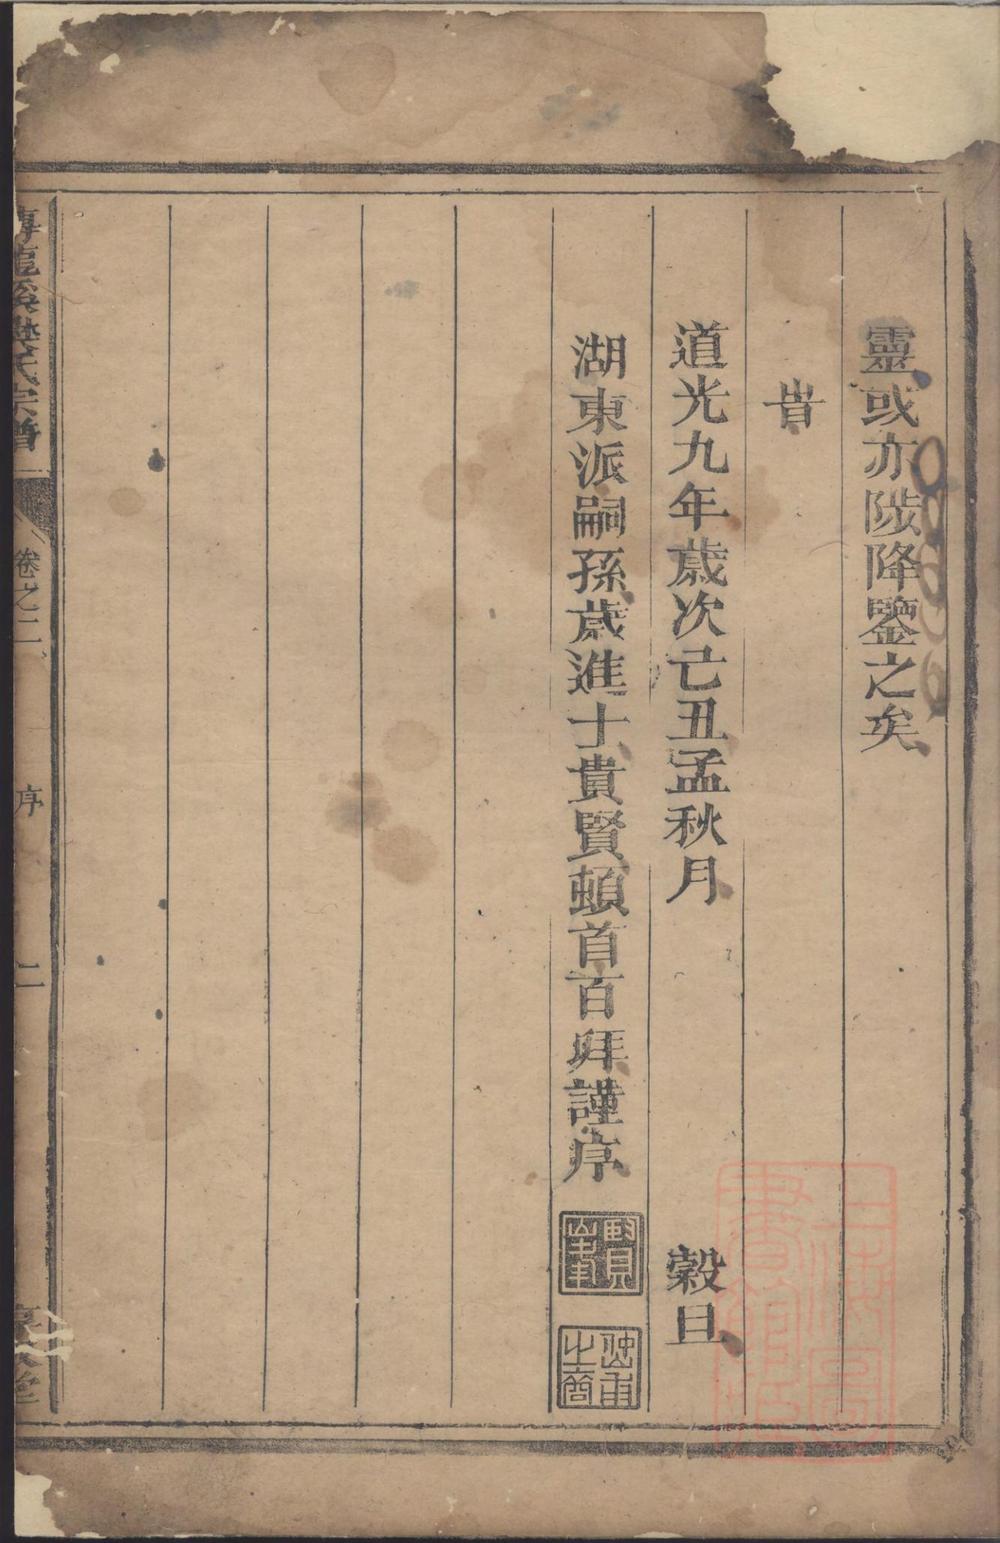 靈或亦陟降鑒之矣
旹
道光九年歲次己丑孟秋月 穀旦
湖東派嗣孫歲進士貴賢頓首百拜謹序
氏宗譜
卷之二
序
二